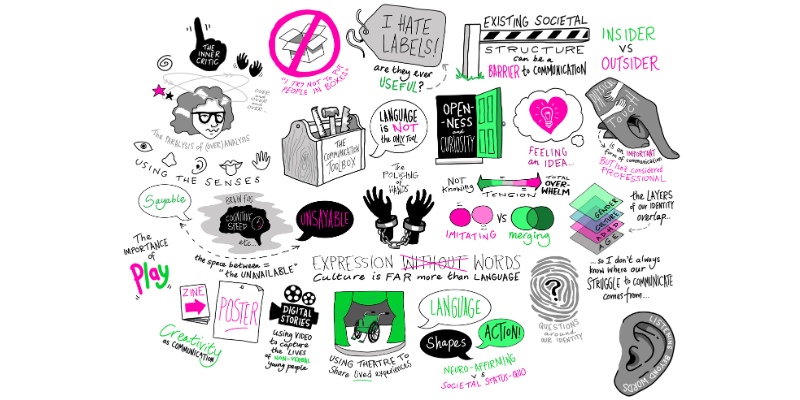 THE
INNER
CRITIC
OVER
AND
OVER
AND
OVER...
The PARALYSIS of (OVER) ANALYSIS
USING THE SENSES
"I TRY NOT TO PUT
PEOPLE IN BOXES"
I HATE
LABELS!
are they ever
USEFUL?
EXISTING SOCIETAL
STRUCTURE
can be a
BARRIER to COMMUNICATION
INSIDER
VS
OUTSIDER
THE
COMMUNICATION
TOOLBOX
LANGUAGE
is NOT
the ONLY TOOL
OPEN-
-NESS
and
CURIOSITY
FEELING
an IDEA...
PHYSICAL
TOUCH
is an IMPORTANT
form of communication
BUT isn't considered
PROFESSIONAL
Sayable
BRAIN FOG
COGNITIVE
SPEED
etc...
UNSAYABLE
the space between =
"the UNAVAILABLE"
The
POLICING
of
HANDS
NOT
Knowing
TENSION
TOTAL
OVER-
WHELM
IMITATING
VS
merging
GENDER
CULTURE
ADHD
AGE
the LAYERS
of OUR IDENTITY
OVERLAP...
...so I don't always
know where our
STRUGGLE to COMMUNICATE
comes from...
The
IMPORTANCE
of
PLAY
EXPRESSION WITHOUT WORDS
Culture is FAR more than LANGUAGE
ZINE
POSTER
Creativity
as COMMUNICATION
DIGITAL
STORIES
using VIDEO
to capture
the LIVES
of NON-VERBAL
young people
USING THEATRE TO
Share lived experiences
LANGUAGE
Shapes
ACTION!
NEURO-AFFIRMING
VS
SOCIETAL STATUS-QUO
?
QUESTIONS
around
OUR IDENTITY
LISTENING BEYOND WORDS